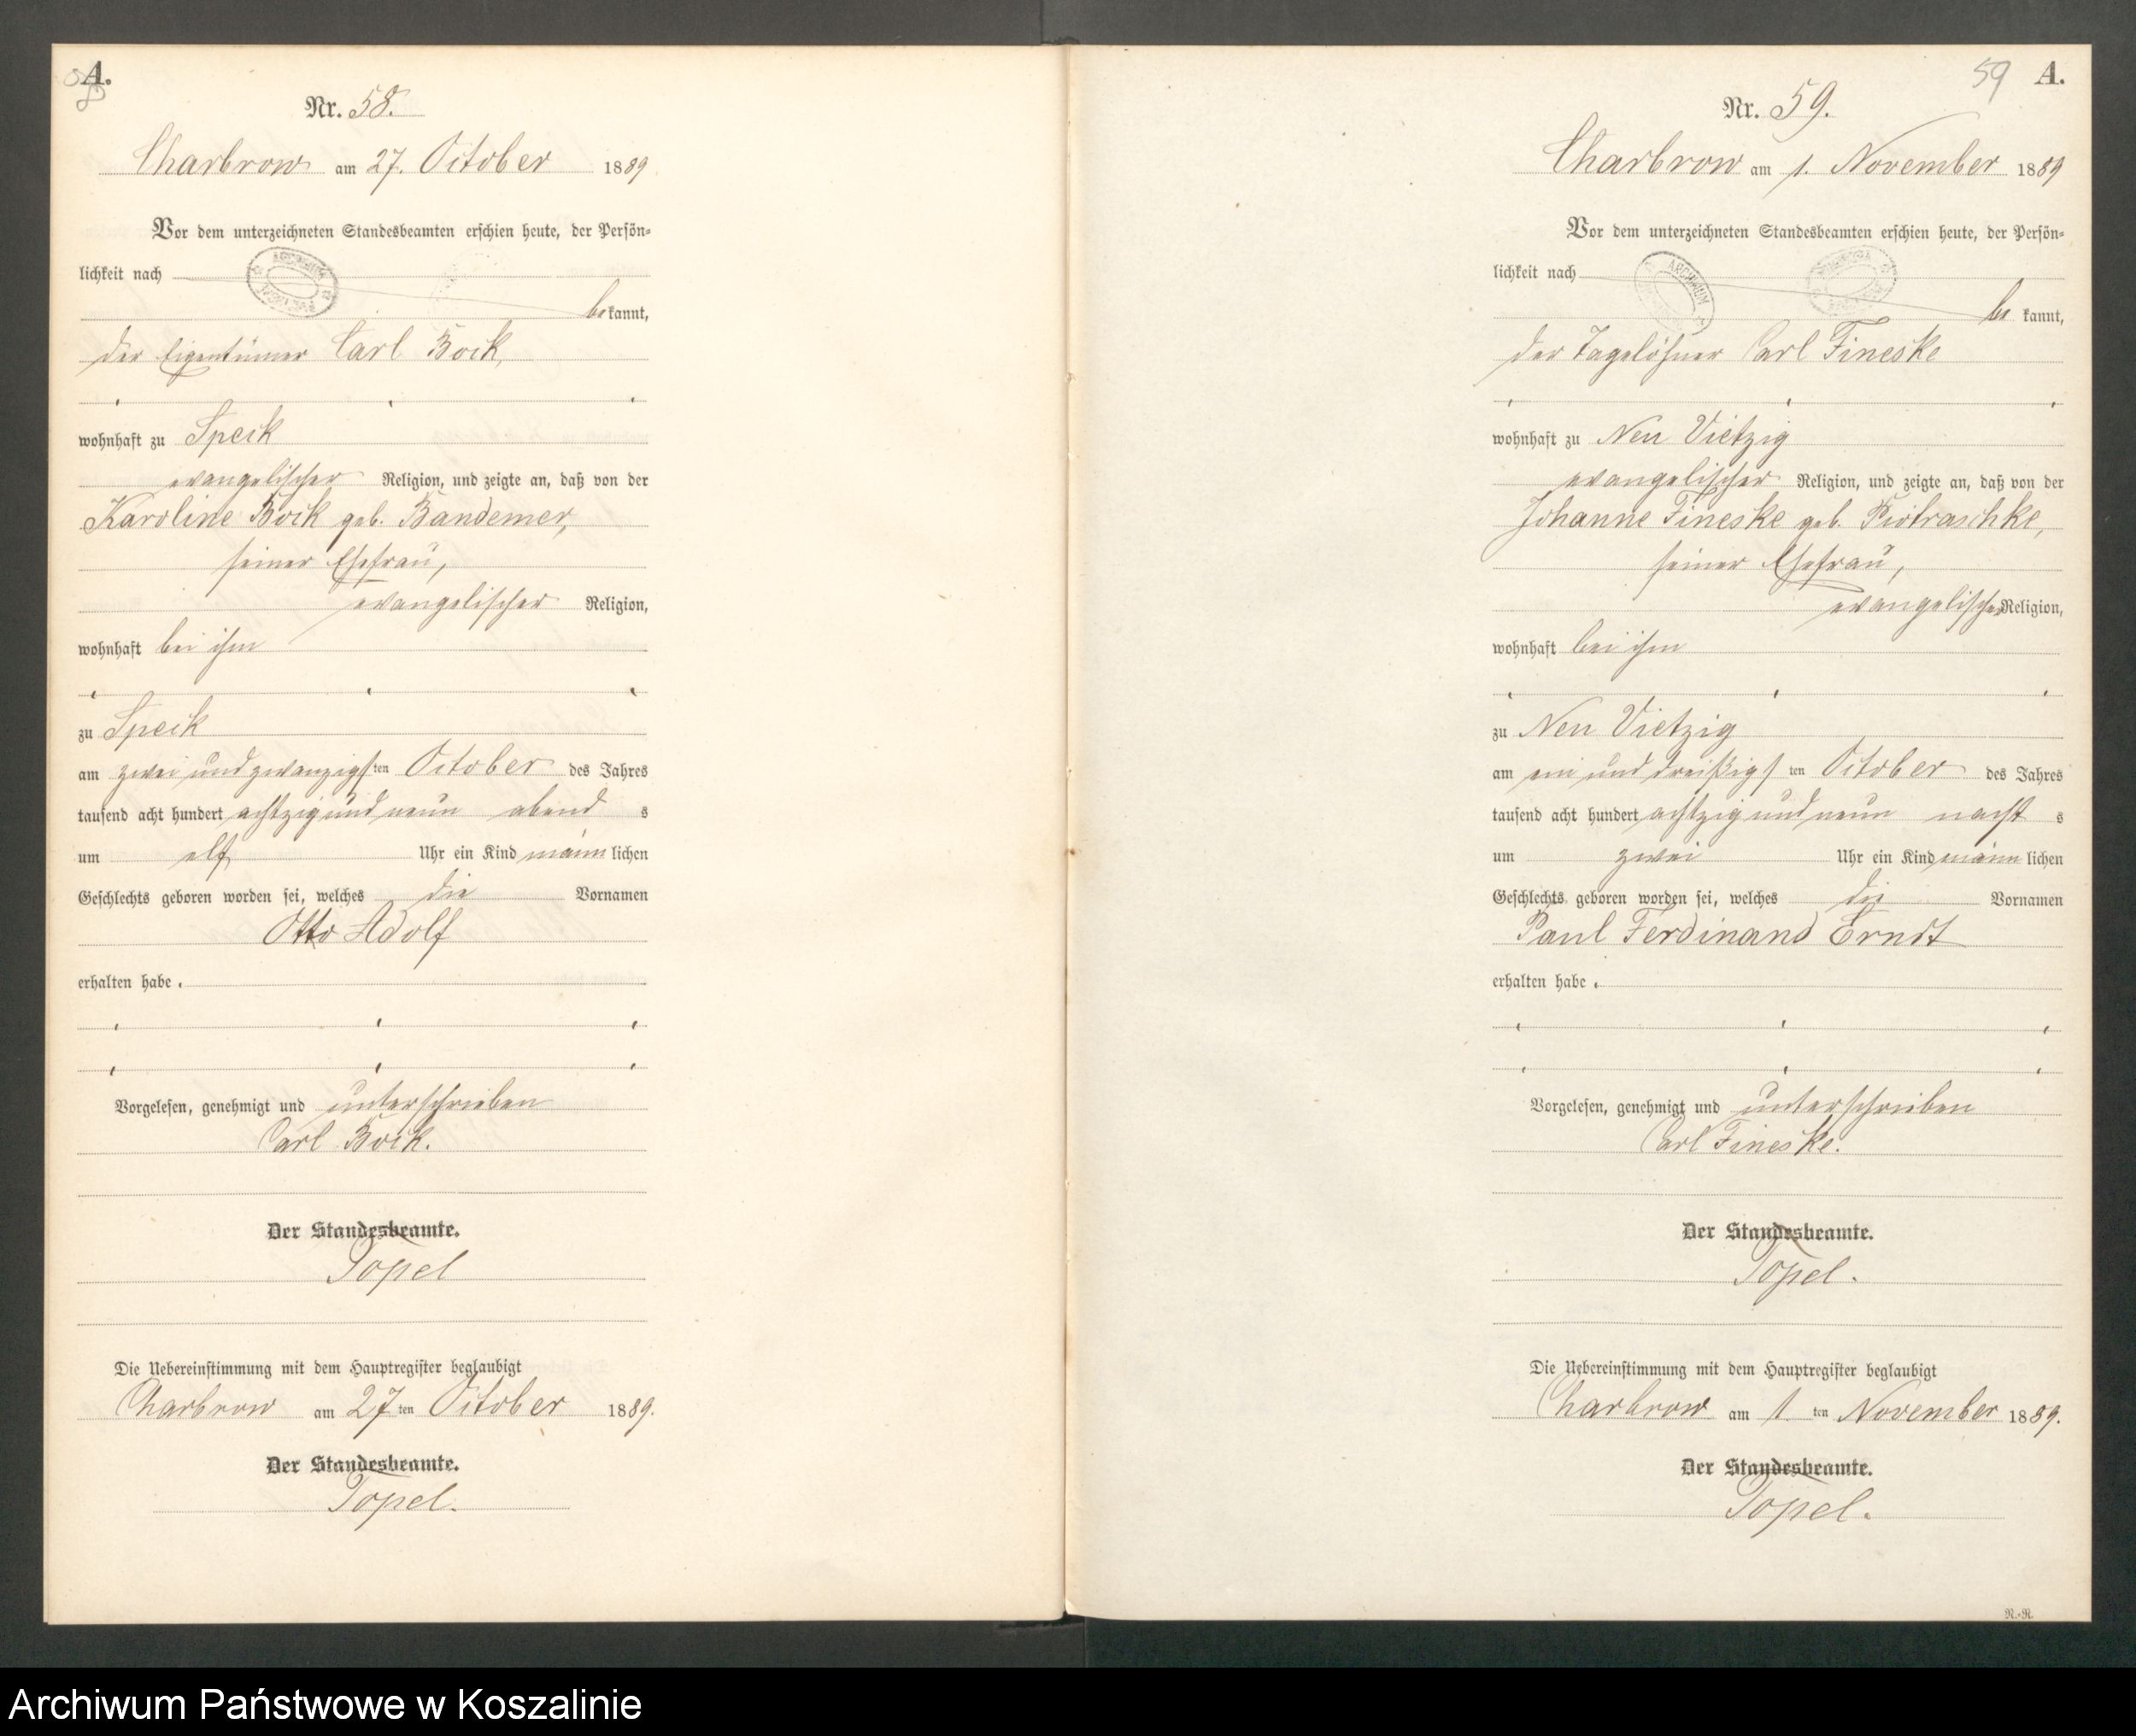 A.
58
Nr. 58.
Charbrow am 27. October 1889
Vor dem unterzeichneten Standesbeamten erschien heute, der Persön-
lichkeit nach
bekannt,
der Eigentümer Carl Bock,
wohnhaft zu Speck
evangelischer Religion, und zeigte an, daß von der
Karoline Bock geb. Bandemer,
seiner Ehefrau,
evangelischer Religion,
wohnhaft bei ihm
zu Speck
am zwei und zwanzigsten October des Jahres
tausend acht hundert achtzig und neun abend s
um elf Uhr ein Kind männlichen
Geschlechts geboren worden sei, welches die Vornamen
Otto Adolf
erhalten habe.
Vorgelesen, genehmigt und unterschrieben
Carl Bock.
Der Standesbeamte.
Topel
Die Uebereinstimmung mit dem Hauptregister beglaubigt
Charbrow am 27ten October 1889.
Der Standesbeamte.
Topel.
59 A.
Nr. 59.
Charbrow am 1. November 1889
Vor dem unterzeichneten Standesbeamten erschien heute, der Persön-
lichkeit nach
ARCHIWUM
be kannt,
der Tagelöhner Carl Fineske
wohnhaft zu Neu Vietzig
evangelischer Religion, und zeigte an, daß von der
Johanne Fineske geb. Piotraschke,
seiner Ehefrau,
evangelischer Religion,
wohnhaft bei ihm
zu Neu Vietzig
am ein und dreißigsten October des Jahres
tausend acht hundert achtzig und neun nacht s
um zwei Uhr ein Kind männlichen
Geschlechts geboren worden sei, welches die Vornamen
Paul Ferdinand Erndt
erhalten habe.
Vorgelesen, genehmigt und unterschrieben
Carl Fineske.
Der Standesbeamte.
Topel.
Die Uebereinstimmung mit dem Hauptregister beglaubigt
Charbrow am 1ten November 1889.
Der Standesbeamte.
Topel.
N.-N.
Archiwum Państwowe w Koszalinie